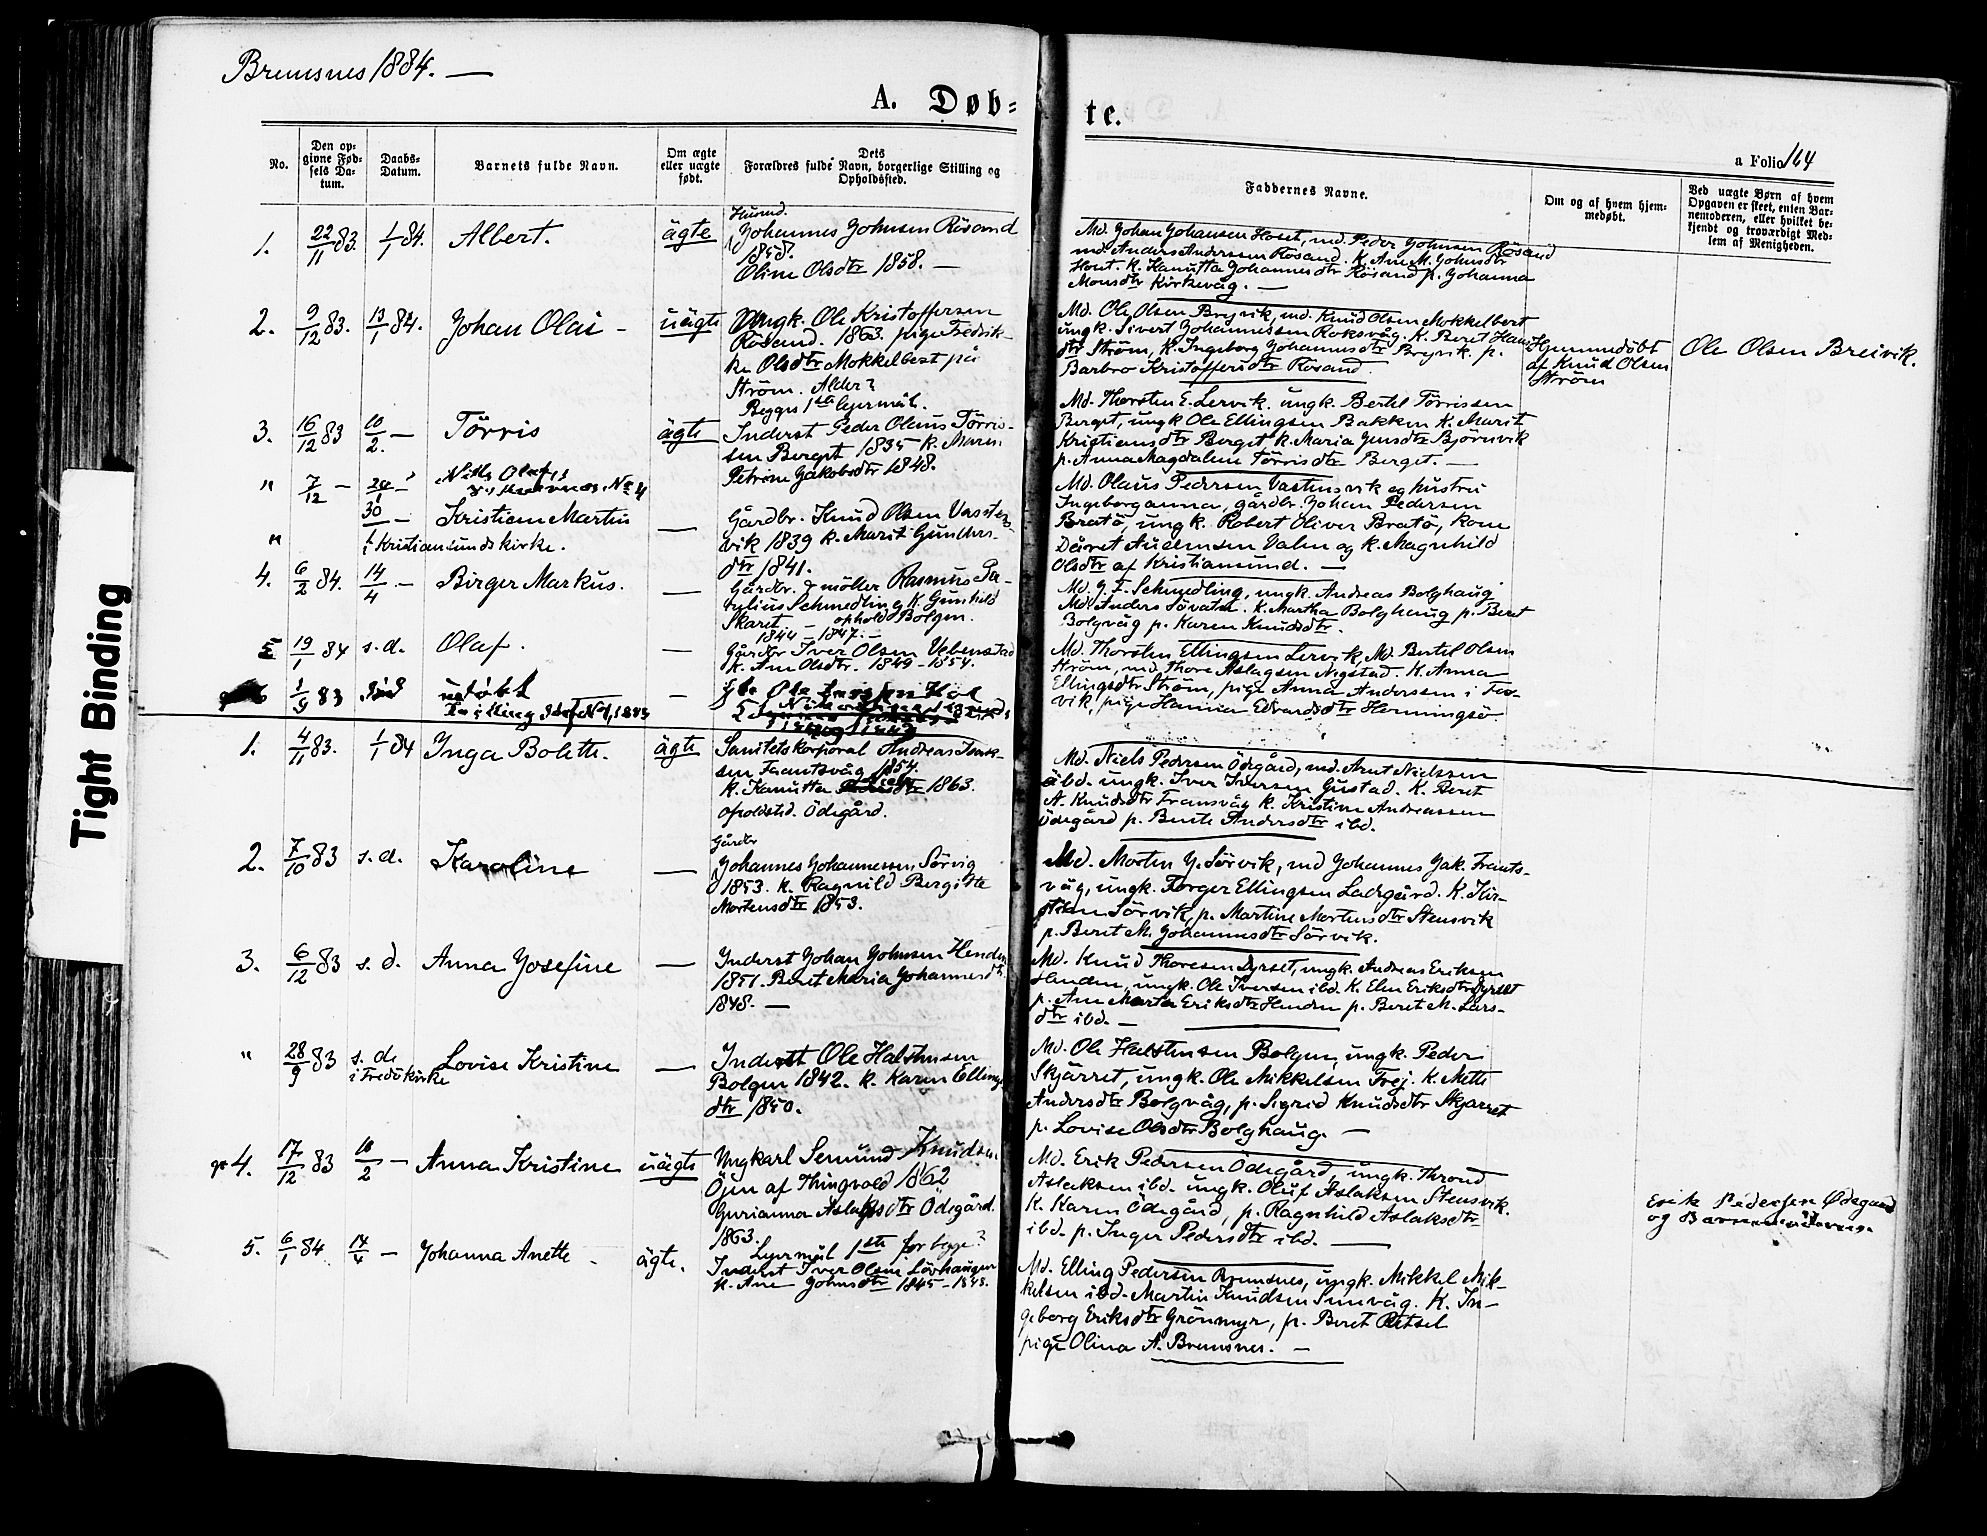 Bremsnes 1884. —
A. Døb=
te.
a Folio 164
No.
Den op-
givne Føb-
sels Da-
tum.
Daabs-
Datum.
Barnets fulde Navn.
Om ægte
eller uægte
født.
Dets
Forældres fulde Navn, borgerlige Stilling og
Opholdssted.
Faddernes Navne.
Om og af hvem hjem-
medøbt.
Ved uægte Børn af hvem
Opgaven er skeet, enten Bar-
nemoderen, eller hvilket be-
kjendt og troværdigt Med-
lem af Menigheden.
1. 22/11 83. 1/1 84. Albert. ägte
Husmd.
Johannes Johnsen Rösand
1858.
Oline Olsdtr 1858. —
Md. Johan Johansen Hoset, md. Peder Johnsen Rösand
md. Anders Andersen Rösand. K. Ane M. Johnsdtr
K. Kanutta Johannesdtr Rösand p. Johanna
Monsdtr Kirkevåg. —
2. 9/12 83. 13/1 84. Johan Olai — uägte
Ungk. Ole Kristoffersen
Rösand. 1863. pige Fredrik-
ke Olsdtr Mokkelbost på
Ström. Alder?
Begges 1ste lejermål.
Md. Ole Olsen Brevik, md. Knud Olsen Mokkelbost
ungk. Sivert Johannessen Roksvåg. K. Beret Hans
dtr Ström, K. Ingeborg Johannesdtr Brejvik. p.
Barbro Kristoffersdtr Rösand.
Hjemmedöbt
af Knud Olsen
Ström
Ole Olsen Breivik.
3. 16/12 83 10/2. — Törris ägte
Inderst Peder Olaus Törris-
sen Berget 1835 K. Maren
Petrine Jakobsdtr 1848.
Md. Thorsten E. Lervik. ungk. Bertel Törrissen
Berget, ungk Ole Ellingsen Bakken K. Marit
Kristiansdtr Berget, k. Maria Jensdtr Björnvik
p. Anna Magdalene Törrisdtr Berget. —
" 7/12 — Nils Olaf No 4
30/1 — Kristian Martin —
" i Kristiansunds kirke.
Gårdbr. Knud Olsen Vasstens
vik 1839 k. Marit Gunders-
dtr 1841.
Md. Olaus Pedersen Vastensvik og hustru
Ingeborganna, gårdbr. Johan Pedersen
Bratö, ungk. Robert Oliver Bratö, kone
Valen og k. Magnhild
Olsdtr af Kristiansund. —
4. 6/2 84. 14/4 — Birger Markus. —
Gårdbr. & möller Rasmus Pa-
Schmedling K. Gunhild
Skaret — ophold Bolgen.
1844 – 1847. —
Md. J. I. Schmedling, ungk. Andreas Bolghaug
Md. Anders K. Martha Bolghaug p. Beret
Bolgvåg p. Karen Knudsdtr.
5 19/1 84 s.d. Olaf. —
Gårdbr Iver Olsen Vebenstad
K. Ane Olsdtr. 1849 – 1854.
Md. Thorsten Ellingsen Lervik, Md. Bertel Olsen
Ström, md. Thore Aslagsen Nigstad. K. Anna
Ellingsdtr Ström, pige Anna Anderssen i
vik, pige Hanna Edvardsdtr Henningsö
1/9 83 död udöbt —
1. 4/11 83. 1/1 84 Inga Bolette. ägte
Sanitetskorporal Andreas Isak-
sen Frantsvåg 1854.
K. Kanutta 1863.
opholdsted. Ödegård.
Md. Niels Pedersen Ödegård, md. Arnt Nielssen
ibd. ungk. Iver Iversen Gustad. K. Beret
A. Knudsdtr Fransvåg K. Kristine Andreassen
Ödegård p. Berte Andersdtr ibd.
2. 7/10 83 s.d. Karoline —
Gårdbr
Johannes Johannessen Sörvig
1853. k. Ragnild Bergitte
Mortensdtr 1853.
Md. Morten J. Sörvik, md Johannes Jak. Frants-
våg, ungk. Torger Ellingsen Ladegård. K. Kir-
sten Sörvik, p. Martine Mortensdtr Stensvik
p. Beret M. Johannesdtr Sörvik.
3. 6/12 83 s.d. Anna Josefine —
Inderst Johan Johnsen Henden
1851. Beret Maria Johannesdtr
1848. —
Md. Knud Thoresen Dyrset, ungk. Andreas Eriksen
Henden, ungk. Ole Iversen ibd. K. Elen Eriksdtr Dyrset
p. Ane Marta Eriksdtr Henden p. Beret M. Lars-
dtr ibd. —
" 28/9 83 s.d. Lovise Kristine —
i Fredökirke
Inderst Ole Halstensen
Bolgen 1842. k. Karen Ellings
dtr 1850.
Md. Ole Halstensen Bolgen, ungk. Peder
Skjärret, ungk. Ole Mikkelsen Frej. K. Mette
Andersdtr Bolgvåg, p. Sigrid Knudsdtr Skjarret
p. Lovise Olsdtr Bolghaug. —
4. 17/12 83 10/2 — Anna Kristine uägte
Ungkarl Semund Knudsen
Öjen af Thingvold 1862
Gurianna Aslaksdtr Ödegård.
1863.
Lejermål 1ste for begge?
Md. Erik Pedersen Ödegård, ungk. Thrond
Aslaksen ibd. ungk. Oluf Aslaksen Stensvik.
K. Karen Ödegård, p. Ragnhild Aslaksdtr
ibd. p. Inger Pedersdtr ibd. —
Erik Pedersen Ödegaard
og Barnemoderen.
5. 6/1 84 14/4 — Johanna Anette — ägte.
Inderst Iver Olsen Lövhaugen
K. Ane Johnsdtr 1845 – 1848.
Md. Elling Pedersen Bremsnes, ungk. Mikkel Mik-
kelsen ibd. Martin Knudsen Sunvåg. K. In-
geborg Eriksdtr Grönmyr, p. Beret Retsel
pige Olina A. Bremsnes. —
Tight Binding